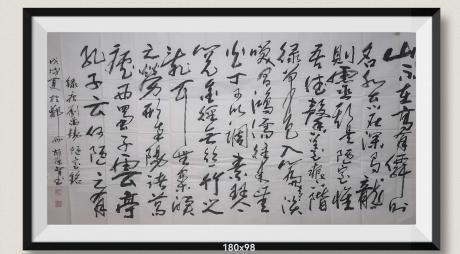 山不在高有僊則
名水不在深有龍
則靈斯是陋室惟
吾德馨苔痕上階
綠草色入簾青談
笑有鴻儒往來無
白丁可以調素琴
閱金經無絲竹之
亂耳無案牘
之勞形南陽諸葛
廬西蜀子雲亭
孔子云何陋之有
錄唐劉禹錫陋室銘
戊戌夏於
180x98